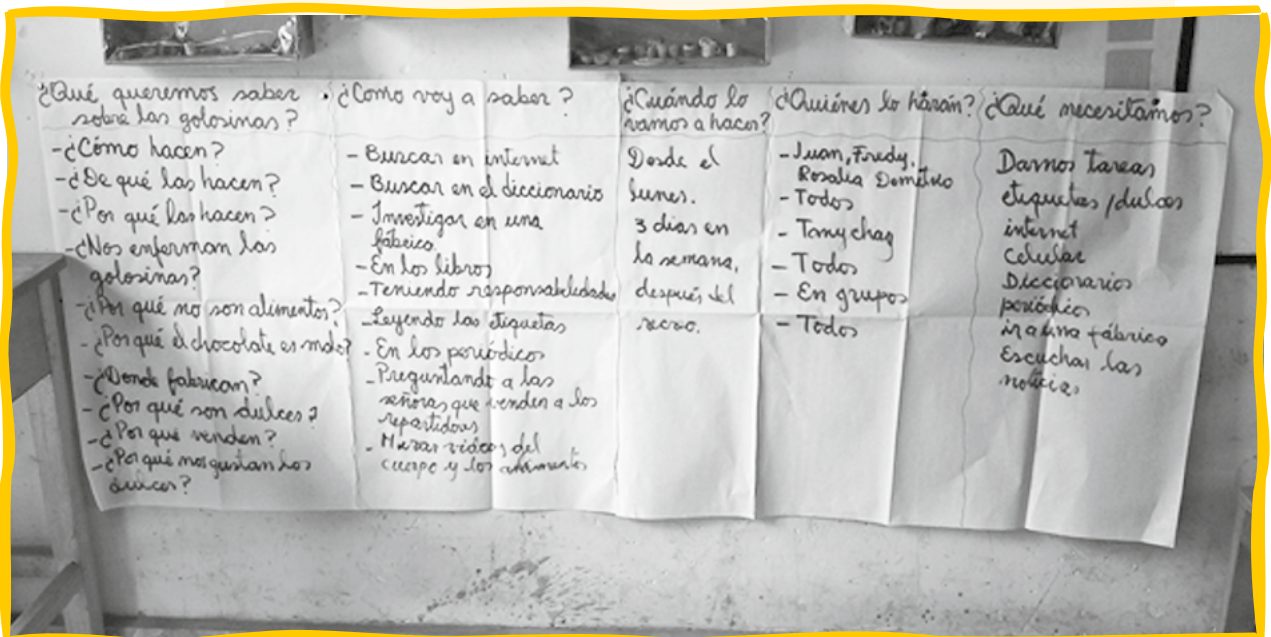 ¿Qué queremos saber
sobre las golosinas?
-¿Cómo hacen?
-¿De qué las hacen?
-¿Por qué las hacen?
-¿Nos enferman las
golosinas?
-¿Por qué no son alimentos?
-¿Por qué el chocolate es malo?
-¿Donde fabrican?
-¿Por qué son dulces?
-¿Por qué venden?
-¿Por qué nos gustan los
dulces?
¿Como voy a saber?
- Buscar en internet
- Buscar en el diccionario
- Investigar en una
fábrica.
- En los libros
- Teniendo responsabilidades
- Leyendo las etiquetas
- En los periódicos
- Preguntando a las
señoras que venden a los
repartidores
- Mirar videos del
cuerpo y los
¿Cuándo lo
vamos a hacer?
Desde el
lunes.
3 dias en
la semana,
después del
recreo.
¿Quiénes lo harán?
- Juan, Fredy.
Rosalia Demetrio
- Todos
-
- Todos
- En grupos
- Todos
¿Qué necesitamos?
Darnos tareas
etiquetas / dulces
internet
Celular
Diccionarios
periódico
ir a una fábrica
Escuchar las
noticias